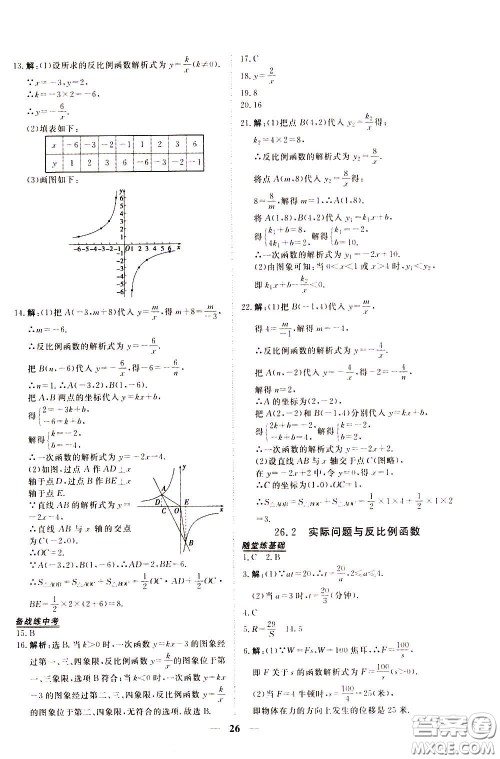 13.解:(1)设所求的反比例函数解析式为 y=k/x(k≠0).
∵x=-3,y=2.
∴k=-3×2=-6.
∴y=-6/x.
(2)填表如下:
x -6 -3 -2 2 3 6
y 1 2 3 -3 -2 -1
(3)画图如下:
14.解:(1)把 A(-3,m+8)代入 y=m/x,得 m+8=m/-3,
∴m=-6.
∴反比例函数的解析式为 y=-6/x.
把 B(n,-6)代入 y=-6/x,得-6=-6/n,
∴n=1.∴A(-3,2),B(1,-6).
把 A,B 两点的坐标代入 y=kx+b,
得{2=-3k+b, -6=k+b,
解得{k=-2, b=-4.
∴一次函数的解析式为 y=-2x-4.
(2)如图,过点 A 作 AD⊥x
轴于点 D,过点 B 作 BE⊥x
轴于点 E.
∵直线 AB 的解析式为 y=
-2x-4,
∴直线 AB 与 x 轴的交点为
C(-2,0).
∴OC=2.
∴S△AOB=S△AOC+S△BOC=1/2OC·AD+1/2OC·
BE=1/2×2×(2+6)=8.
备战练中考
15.B
16.解析:选 B.当 k>0 时,一次函数 y=kx-3 的图象经
过第一、三、四象限,反比例函数 y=k/x 的图象位于第
一、三象限,选项 B 符合;当 k<0 时,一次函数 y=kx
-3的图象经过第二、三、四象限,反比例函数 y=k/x 的
图象位于第二、四象限,无符合的选项.故选 B.
17.C
18.y=2/x
19.8
20.16
21.解:(1)把点 B(4,2)代入 y₂=k₂/x 得:
k₂=4×2=8,
∴反比例函数的解析式为 y₂=8/x.
将点 A(m,8)代入 y₂=8/x 得:
8=8/m,解得 m=1.∴A(1,8).
将 A(1,8),B(4,2)代入 y₁=k₁x+b,
得{k₁+b=8, 4k₁+b=2, 解得{k₁=-2, b=10.
∴一次函数的解析式为 y₁=-2x+10.
(2)由图象可知:当 0<x<1 或 x>4 时,y₁<y₂,
即 k₁x+b<k₂/x.
22.解:(1)把 B(-1,4)代入 y=m/x,
得 4=m/-1,解得 m=-4.
∴反比例函数的解析式为 y=-4/x.
解得 n=2.
∴A 的坐标为(2,-2).
得{2k+b=-2, -k+b=4, 解得{k=-2, b=2.
∴一次函数的解析式为 y=-2x+2.
(2)设直线 AB 与 x 轴交于点 C(图略)
在 y=-2x+2 中,令 y=0,得 x=1.
∴C 的坐标为(1,0),∴OC=1.
∴S△AOB=S△AOC+S△BOC=1/2×1×4+1/2×1×2
=2+1=3.
26.2 实际问题与反比例函数
随堂练基础
1.C 2.B
3.解:(1)∵at=20,∴t=20/a,
4.C
5.R=29/S 14.5
6.解:(1)∵W=Fs,W=100,∴Fs=100,∴F=100/s,
即 F 关于 s 的函数解析式为 F=100/s(s>0).
(2)当 F=4 牛顿时,s=100/4=25(米),
即物体在力的方向上发生的位移是 25 米.
26